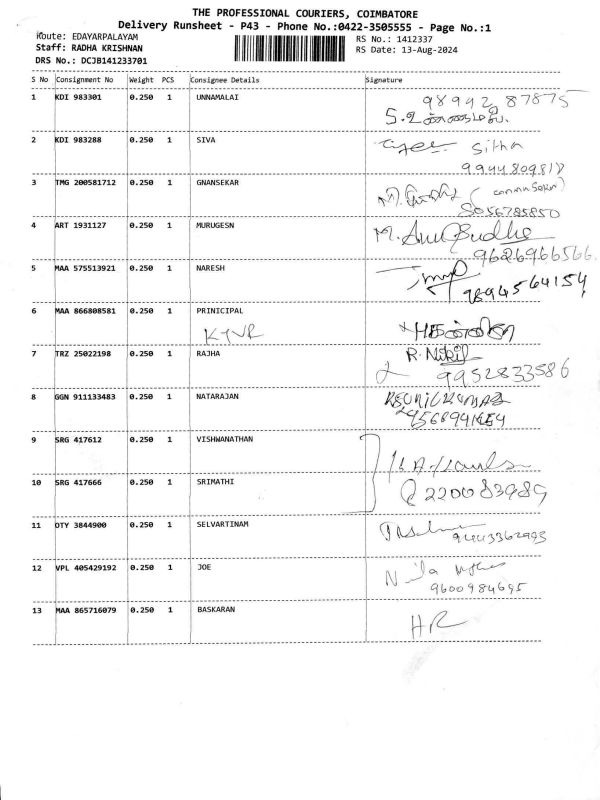 THE PROFESSIONAL COURIERS, COIMBATORE
Delivery Runsheet - P43 - Phone No.:0422-3505555 - Page No.:1
Route: EDAYARPALAYAM
RS No.: 1412337
Staff: RADHA KRISHNAN
RS Date: 13-Aug-2024
DRS No.: DCJB141233701
S No Consignment No Weight PCS Consignee Details Signature
1 KDI 983301 0.250 1 UNNAMALAI 98942 87875
2 KDI 983288 0.250 1 SIVA Sitha
3 TMG 200581712 0.250 1 GNANSEKAR
8056785850
4 ART 1931127 0.250 1 MURUGESN
9626966566.
5 MAA 575513921 0.250 1 NARESH
9894564154
6 MAA 866808581 0.250 1 PRINICIPAL
KTVR
7 TRZ 25022198 0.250 1 RAJHA R. Nikil
9952833586
8 GGN 911133483 0.250 1 NATARAJAN
9 SRG 417612 0.250 1 VISHWANATHAN
10 SRG 417666 0.250 1 SRIMATHI
220083989
11 OTY 3844900 0.250 1 SELVARTINAM
12 VPL 405429192 0.250 1 JOE
9600984695
13 MAA 865716079 0.250 1 BASKARAN
HR